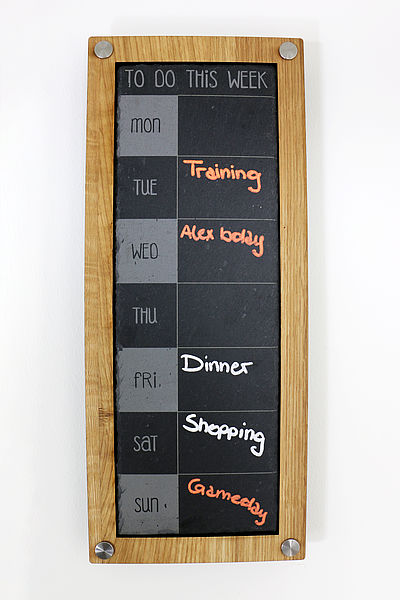 TO DO THIS WEEK
MON
TUE Training
WED Alex bday
THU
FRI Dinner
SAT Shopping
SUN Gameday